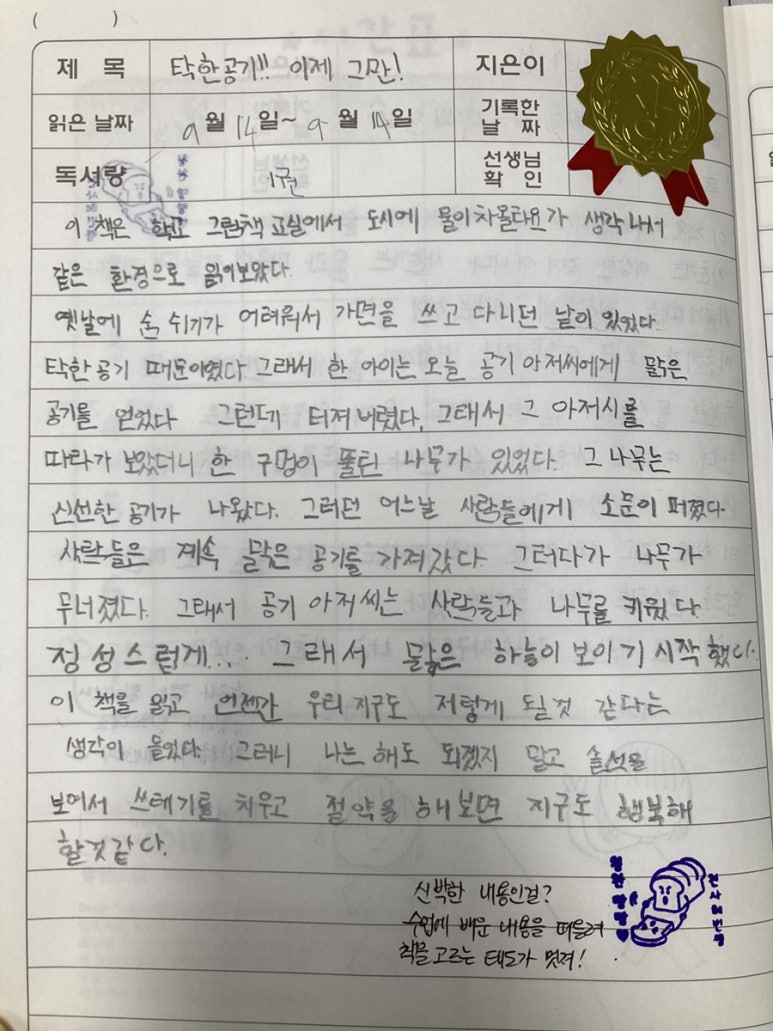 ( )
제 목 탁한공기!! 이제 그만! 지은이
읽은 날짜 9월 14일~ 9월 14일 기록한 날 짜
독서량 1권 선생님 확 인
이 책은 학교 그린책 교실에서 도시에 물이차올라요가 생각나서
같은 환경으로 읽어보았다.
옛날에 숨 쉬기가 어려워서 가면을 쓰고 다니던 날이 있었다
탁한 공기 때문이였다. 그래서 한 아이는 오늘 공기 아저씨에게 맑은
공기를 얻었다 그런데 터져 버렸다. 그래서 그 아저시를
따라가 보았더니 한 구멍이 뚤린 나무가 있었다. 그 나무는
신선한 공기가 나왔다. 그러던 어느날 사람들에게 소문이 퍼졌다.
사람들은 계속 맑은 공기를 가져갔다. 그러다가 나무가
무너졌다. 그래서 공기 아저씨는 사람들과 나무를 키웠다.
정성스럽게... 그래서 맑은 하늘이 보이기 시작했다.
이 책을 읽고 언젠간 우리 지구도 저렇게 될것 같다는
생각이 들었다. 그러니 나는 해도 되겠지 말고 솔선을
보여서 쓰레기를 치우고 절약을 해보면 지구도 행복해
할것같다.
신박한 내용인걸?
수업에 배운 내용을 떠올려
책을 고르는 태도가 멋져!